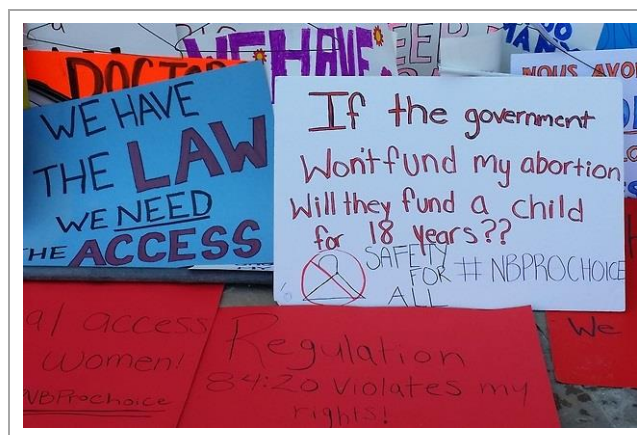 DOCTOR
WE HAVE
NOUS AVO
WE HAVE
THE LAW
WE NEED
THE ACCESS
If the government
Won't fund my abortion
Will they fund a child
for 18 years??
SAFETY
FOR
ALL
# NBPROCHOICE
al access
women!
NBProchoice
Regulation
84:20 violates my
rights!
We